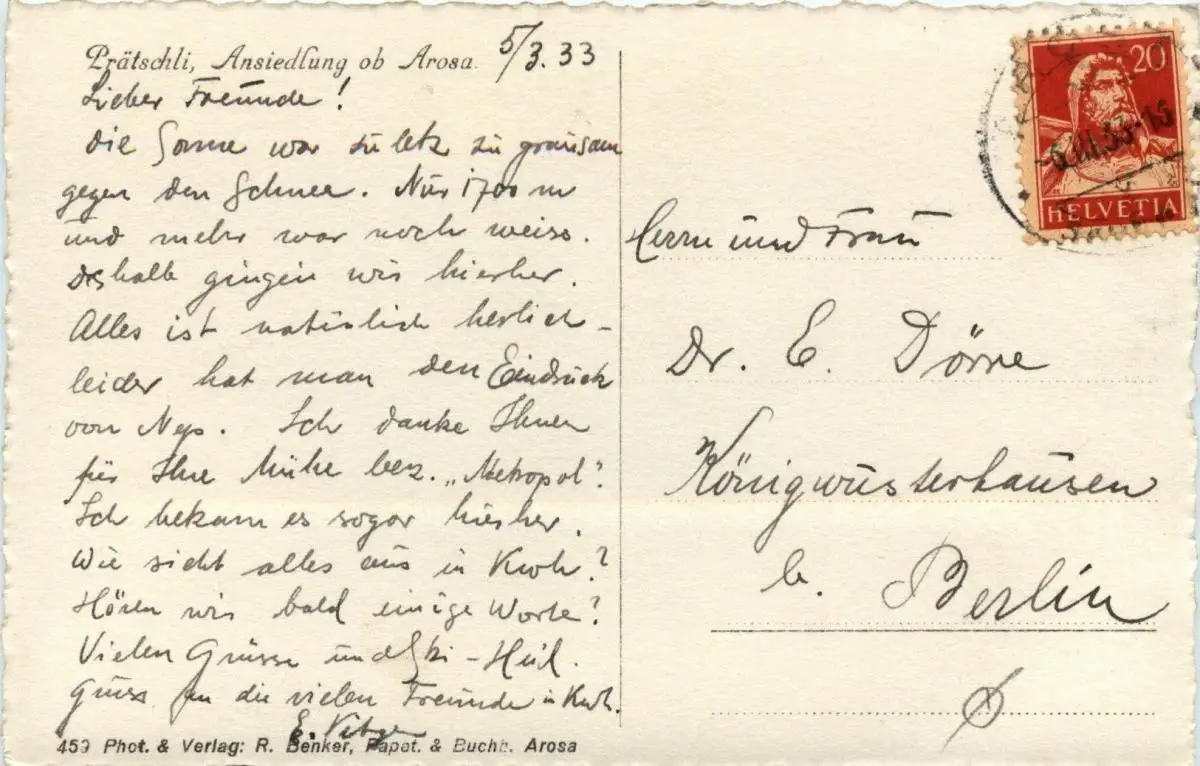 Prätschli, Ansiedlung ob Arosa.
5/3.33
Lieber Freunde!
die Sonne war zu letz zu grausam
gegen den Schnee. Nur 1700 m
und mehr war noch weiss.
Deshalb gingen wir hierher.
Alles ist natürlich herlich –
leider hat man den Eindruck
von
Ich danke Ihnen
für Ihre Mühe bez. „Metropol".
Ich bekam es sogar hierher.
Wie sieht alles aus in Kwh.?
Hören wir bald einige Worte?
Vielen Grüsse und Ski-Heil.
Gruss an die vielen Freunde in Kwh.
459 Phot. & Verlag: R. Benker, Papet. & Buchh. Arosa
20
HELVETIA
6.III.33-15
Herrn und Frau
Dr. E. Dörre
Königwusterhausen
b. Berlin